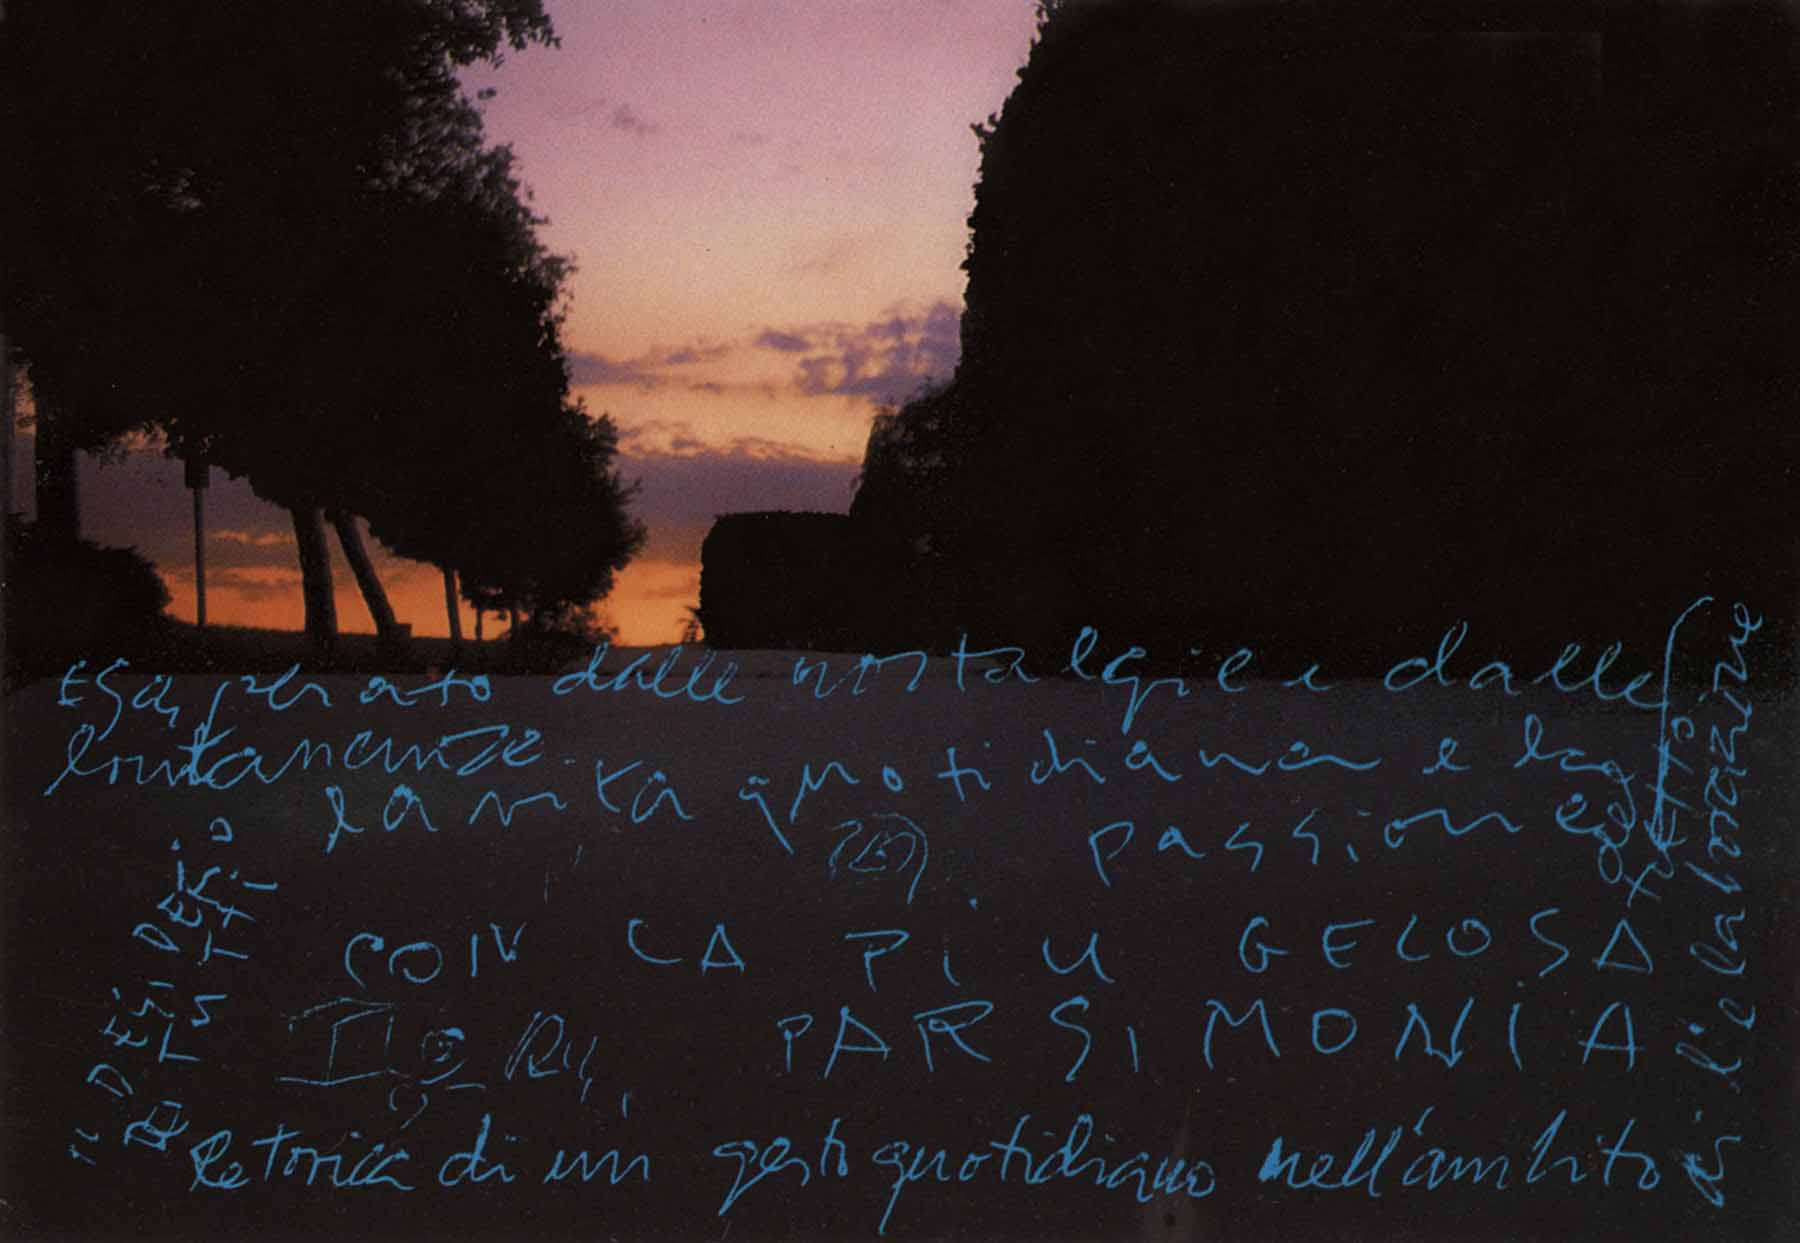 Esasperato dalle nostalgie e dalle
lontananze.
la vita quotidiana e la
passione
CON LA PIU GELOSA
PARSIMONIA
Retorica di un gesto quotidiano nell'ambito
di l'elaborazione
DESIDERIO
DI TUTTI